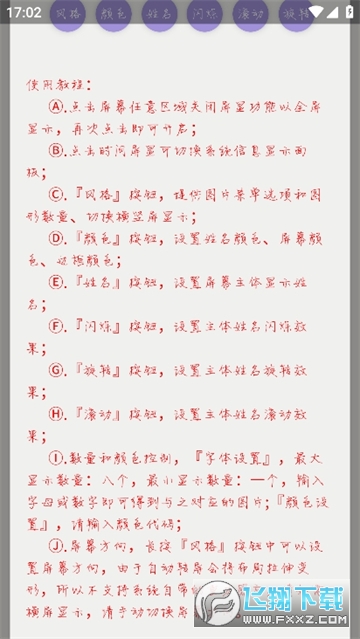 17:02
风格 颜色 姓名 闪烁 滚动 旋转
使用教程：
Ⓐ.点击屏幕任意区域关闭屏显功能以全屏
显示，再次点击即可开启；
Ⓑ.点击时间屏显可切换系统信息显示面
板；
Ⓒ.『风格』按钮，提供图片菜单选项和图
形数量、切换横竖屏显示；
Ⓓ.『颜色』按钮，设置姓名颜色、屏幕颜
色、边框颜色；
Ⓔ.『姓名』按钮，设置屏幕主体显示姓
名；
Ⓕ.『闪烁』按钮，设置主体姓名闪烁效
果；
Ⓖ.『旋转』按钮，设置主体姓名旋转效
果；
Ⓗ.『滚动』按钮，设置主体姓名滚动效
果；
Ⓘ.数量和颜色控制，『字体设置』，最大
显示数量：八个，最小显示数量：一个，输入
字母或数字即可得到与之对应的图片；『颜色设
置』，请输入颜色代码；
Ⓙ.屏幕方向，长按『风格』按钮中可以设
置屏幕方向，由于自动转屏会将布局拉伸变
形，所以不支持系统自带的
横屏显示，请手动切换屏
飞翔下载
WWW.FXXZ.COM